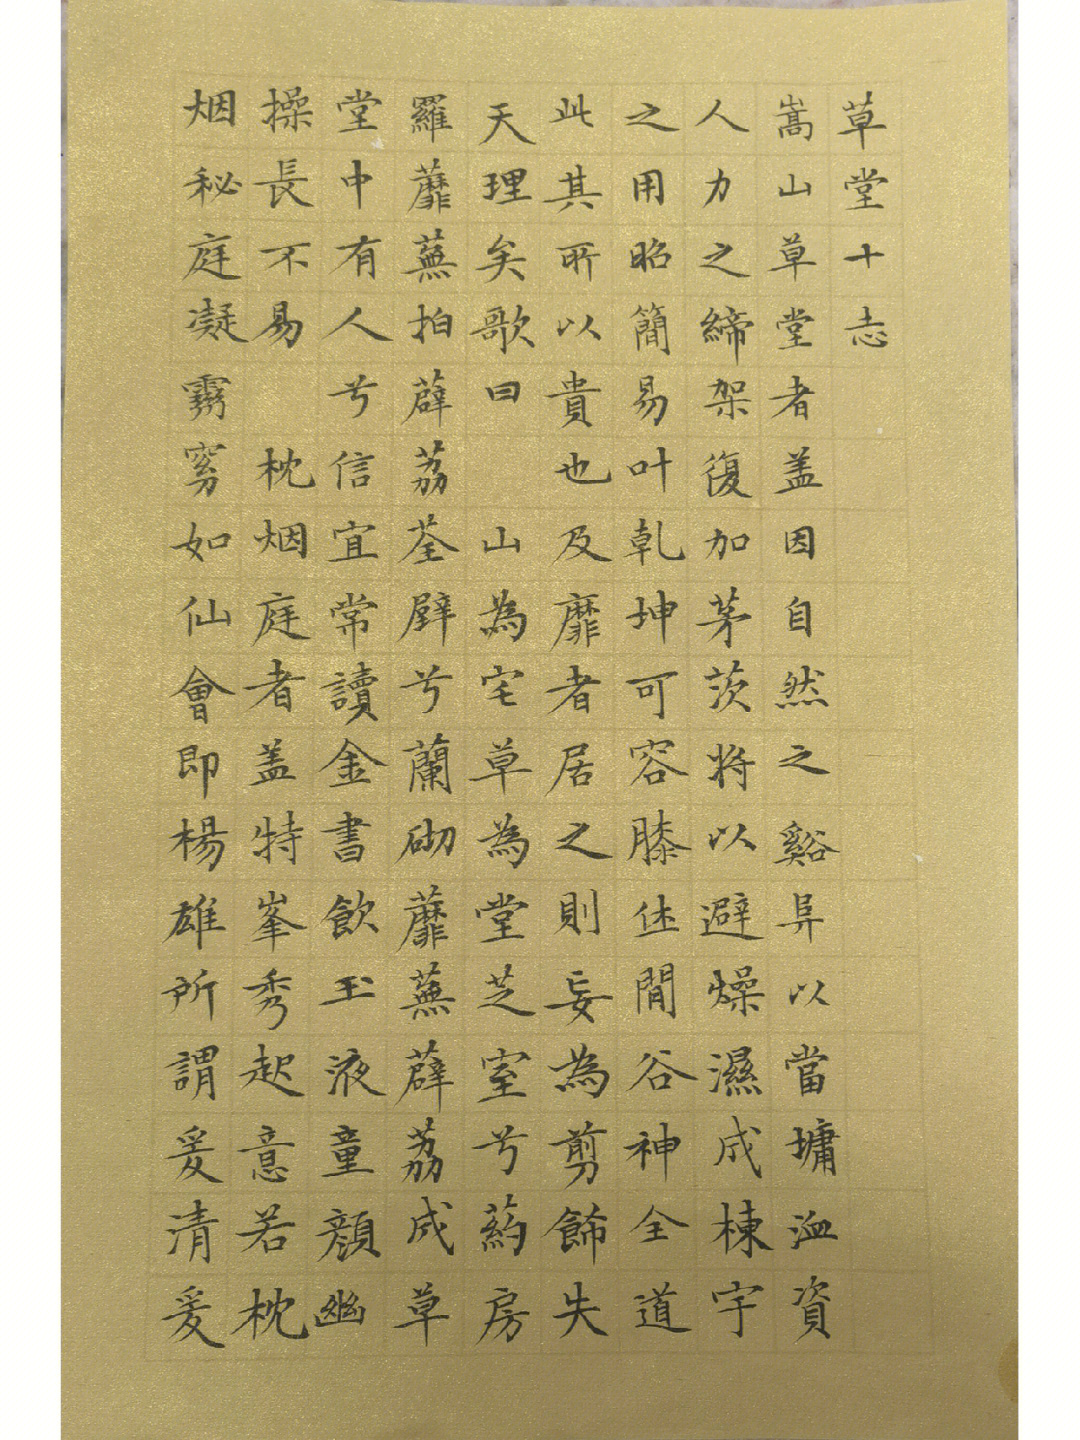 草堂十志
嵩山草堂者盖因自然之谿阜以當墉洫資
人力之締架復加茅茨將以避燥濕成棟宇
之用昭簡易叶乾坤可容膝休閒谷神全道
此其所以貴也及靡者居之則妄為剪飾失
天理矣歌曰 山為宅草為堂芝室兮葯房
羅蘼蕪拍薜荔荃壁兮蘭砌蘼蕪薜荔成草
堂中有人兮信宜常讀金書飲玉液童顏幽
操長不易 枕烟庭者盖特峯秀起意若枕
烟秘庭凝霧窈如仙會即楊雄所謂爰清爰